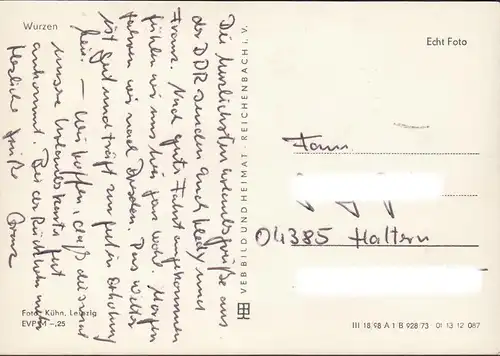 Wurzen
Die herzlichsten Urlaubsgrüße aus
der DDR senden auch Hedy und
Franz. Nach guter Fahrt angekommen
fühlen wir uns hier ganz wohl. Morgen
fahren wir nach Dresden. Das Wetter
ist gut und trägt zur guten Erholung
bei. – Wir hoffen, daß diesmal
unsere Urlaubskarte gut
ankommt. Bei der Rückkehr mehr
Herzliche Grüße
Foto: Kühn, Leipzig
EVP M –,25
VEB BILD UND HEIMAT · REICHENBACH i. V.
Echt Foto
Fam.
04385 Haltern
III 18/98 A 1 B 928/73 01 13 12 087